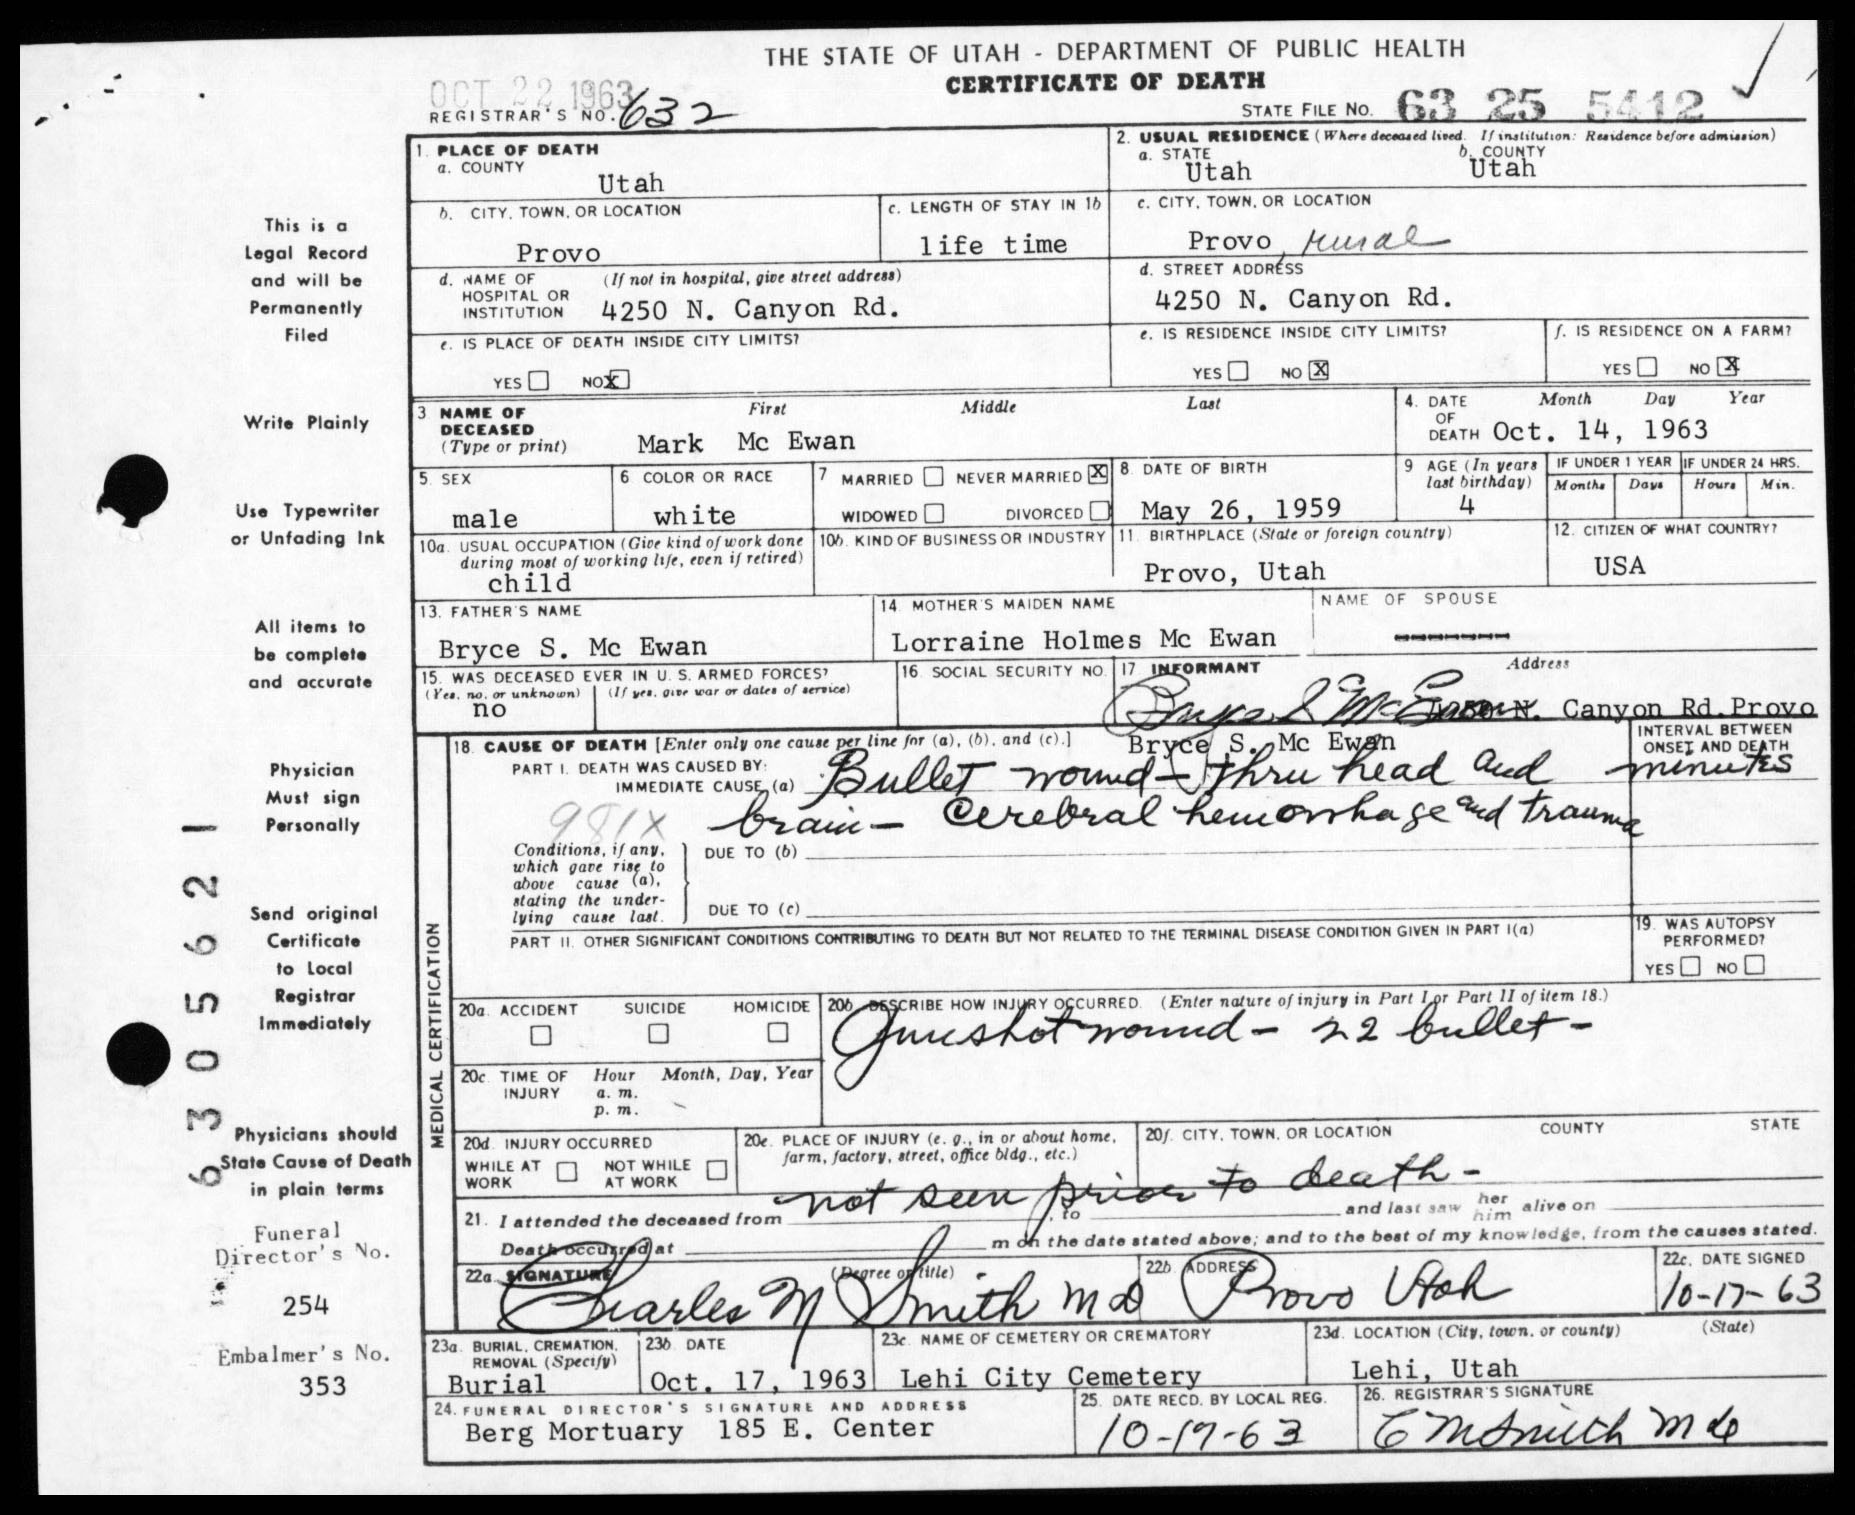 THE STATE OF UTAH - DEPARTMENT OF PUBLIC HEALTH
CERTIFICATE OF DEATH
OCT 22 1963
REGISTRAR'S NO. 632
STATE FILE NO. 63 25 5412
This is a
Legal Record
and will be
Permanently
Filed
Write Plainly
Use Typewriter
or Unfading Ink
All items to
be complete
and accurate
Physician
Must sign
Personally
Send original
Certificate
to Local
Registrar
Immediately
Physicians should
State Cause of Death
in plain terms
Funeral
Director's No.
254
Embalmer's No.
353
6305621
1. PLACE OF DEATH
a. COUNTY
Utah
2. USUAL RESIDENCE (Where deceased lived. If institution: Residence before admission)
a. STATE
Utah
b. COUNTY
Utah
b. CITY, TOWN, OR LOCATION
Provo
c. LENGTH OF STAY IN 1b
life time
c. CITY, TOWN, OR LOCATION
Provo, rural
d. NAME OF (If not in hospital, give street address)
HOSPITAL OR
INSTITUTION 4250 N. Canyon Rd.
d. STREET ADDRESS
4250 N. Canyon Rd.
e. IS PLACE OF DEATH INSIDE CITY LIMITS?
YES NO X
e. IS RESIDENCE INSIDE CITY LIMITS?
YES NO X
f. IS RESIDENCE ON A FARM?
YES NO X
3 NAME OF
DECEASED
(Type or print)
First Middle Last
Mark Mc Ewan
4. DATE
OF
DEATH
Month Day Year
Oct. 14, 1963
5. SEX
male
6 COLOR OR RACE
white
7 MARRIED NEVER MARRIED X
WIDOWED DIVORCED
8 DATE OF BIRTH
May 26, 1959
9 AGE (In years
last birthday)
4
IF UNDER 1 YEAR
Months Days
IF UNDER 24 HRS.
Hours Min.
10a. USUAL OCCUPATION (Give kind of work done
during most of working life, even if retired)
child
10b. KIND OF BUSINESS OR INDUSTRY
11. BIRTHPLACE (State or foreign country)
Provo, Utah
12. CITIZEN OF WHAT COUNTRY?
USA
13. FATHER'S NAME
Bryce S. Mc Ewan
14. MOTHER'S MAIDEN NAME
Lorraine Holmes Mc Ewan
NAME OF SPOUSE
--------
15. WAS DECEASED EVER IN U.S. ARMED FORCES?
(Yes, no, or unknown) (If yes, give war or dates of service)
no
16. SOCIAL SECURITY NO.
17 INFORMANT Address
Bryce S McEwan N. Canyon Rd. Provo
Bryce S. Mc Ewan
MEDICAL CERTIFICATION
18. CAUSE OF DEATH [Enter only one cause per line for (a), (b), and (c).]
INTERVAL BETWEEN
ONSET AND DEATH
PART I. DEATH WAS CAUSED BY:
IMMEDIATE CAUSE (a) Bullet wound - thru head and minutes
981X brain - Cerebral hemorrhage and trauma
Conditions, if any,
which gave rise to
above cause (a),
stating the under-
lying cause last.
DUE TO (b)
DUE TO (c)
PART II. OTHER SIGNIFICANT CONDITIONS CONTRIBUTING TO DEATH BUT NOT RELATED TO THE TERMINAL DISEASE CONDITION GIVEN IN PART I(a)
19. WAS AUTOPSY
PERFORMED?
YES NO
20a. ACCIDENT SUICIDE HOMICIDE
20b. DESCRIBE HOW INJURY OCCURRED. (Enter nature of injury in Part I or Part II of item 18.)
Gunshot wound - 22 bullet -
20c. TIME OF
INJURY
Hour Month, Day, Year
a. m.
p. m.
20d. INJURY OCCURRED
WHILE AT
WORK
NOT WHILE
AT WORK
20e. PLACE OF INJURY (e. g., in or about home,
farm, factory, street, office bldg., etc.)
20f. CITY, TOWN, OR LOCATION COUNTY STATE
not seen prior to death -
21. I attended the deceased from , to and last saw her him alive on
Death occurred at m on the date stated above; and to the best of my knowledge, from the causes stated.
22a. SIGNATURE (Degree or title)
Charles M Smith MD
22b. ADDRESS
Provo Utah
22c. DATE SIGNED
10-17-63
23a. BURIAL, CREMATION,
REMOVAL (Specify)
Burial
23b. DATE
Oct. 17, 1963
23c. NAME OF CEMETERY OR CREMATORY
Lehi City Cemetery
23d. LOCATION (City, town, or county) (State)
Lehi, Utah
24. FUNERAL DIRECTOR'S SIGNATURE AND ADDRESS
Berg Mortuary 185 E. Center
25. DATE RECD. BY LOCAL REG.
10-17-63
26. REGISTRAR'S SIGNATURE
C M Smith Md